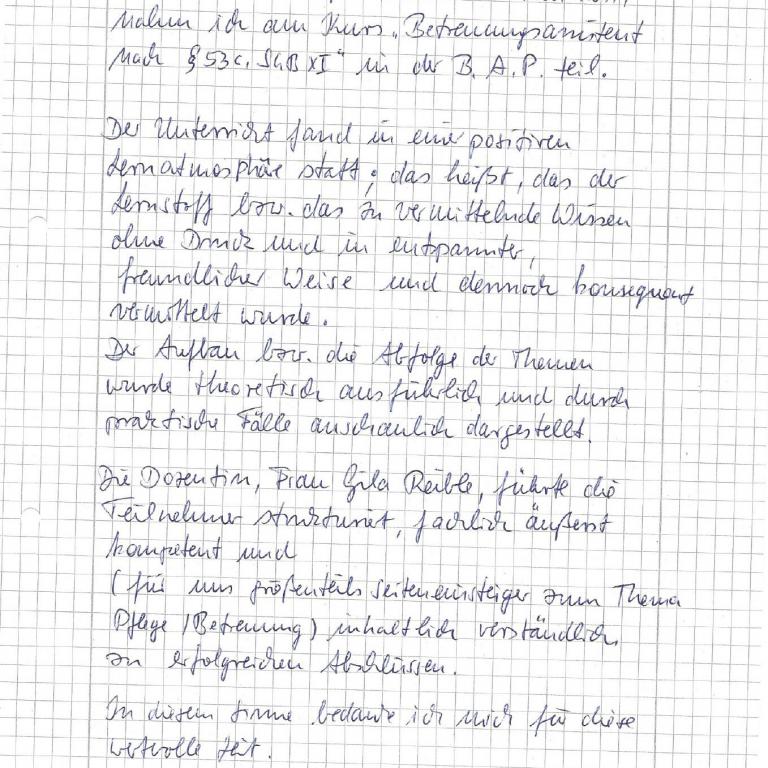 nahm ich am Kurs „Betreuungsassistent
nach § 53c, SGB XI" in der B. A. P. teil.
Der Unterricht fand in einer positiven
Lernatmosphäre statt; das heißt, das der
Lernstoff bzw. das zu vermittelnde Wissen
ohne Druck und in entspannter,
freundlicher Weise und dennoch konsequent
vermittelt wurde.
Der Aufbau bzw. die Abfolge der Themen
wurde theoretisch ausführlich und durch
praktische Fälle anschaulich dargestellt.
Die Dozentin, Frau Gila Reible, führte die
Teilnehmer strukturiert, fachlich äußerst
kompetent und
(für uns größtenteils Seiteneinsteiger zum Thema
Pflege / Betreuung) inhaltlich verständlich,
zu erfolgreichen Abschlüssen.
In diesem Sinne bedanke ich mich für diese
wertvolle Zeit.